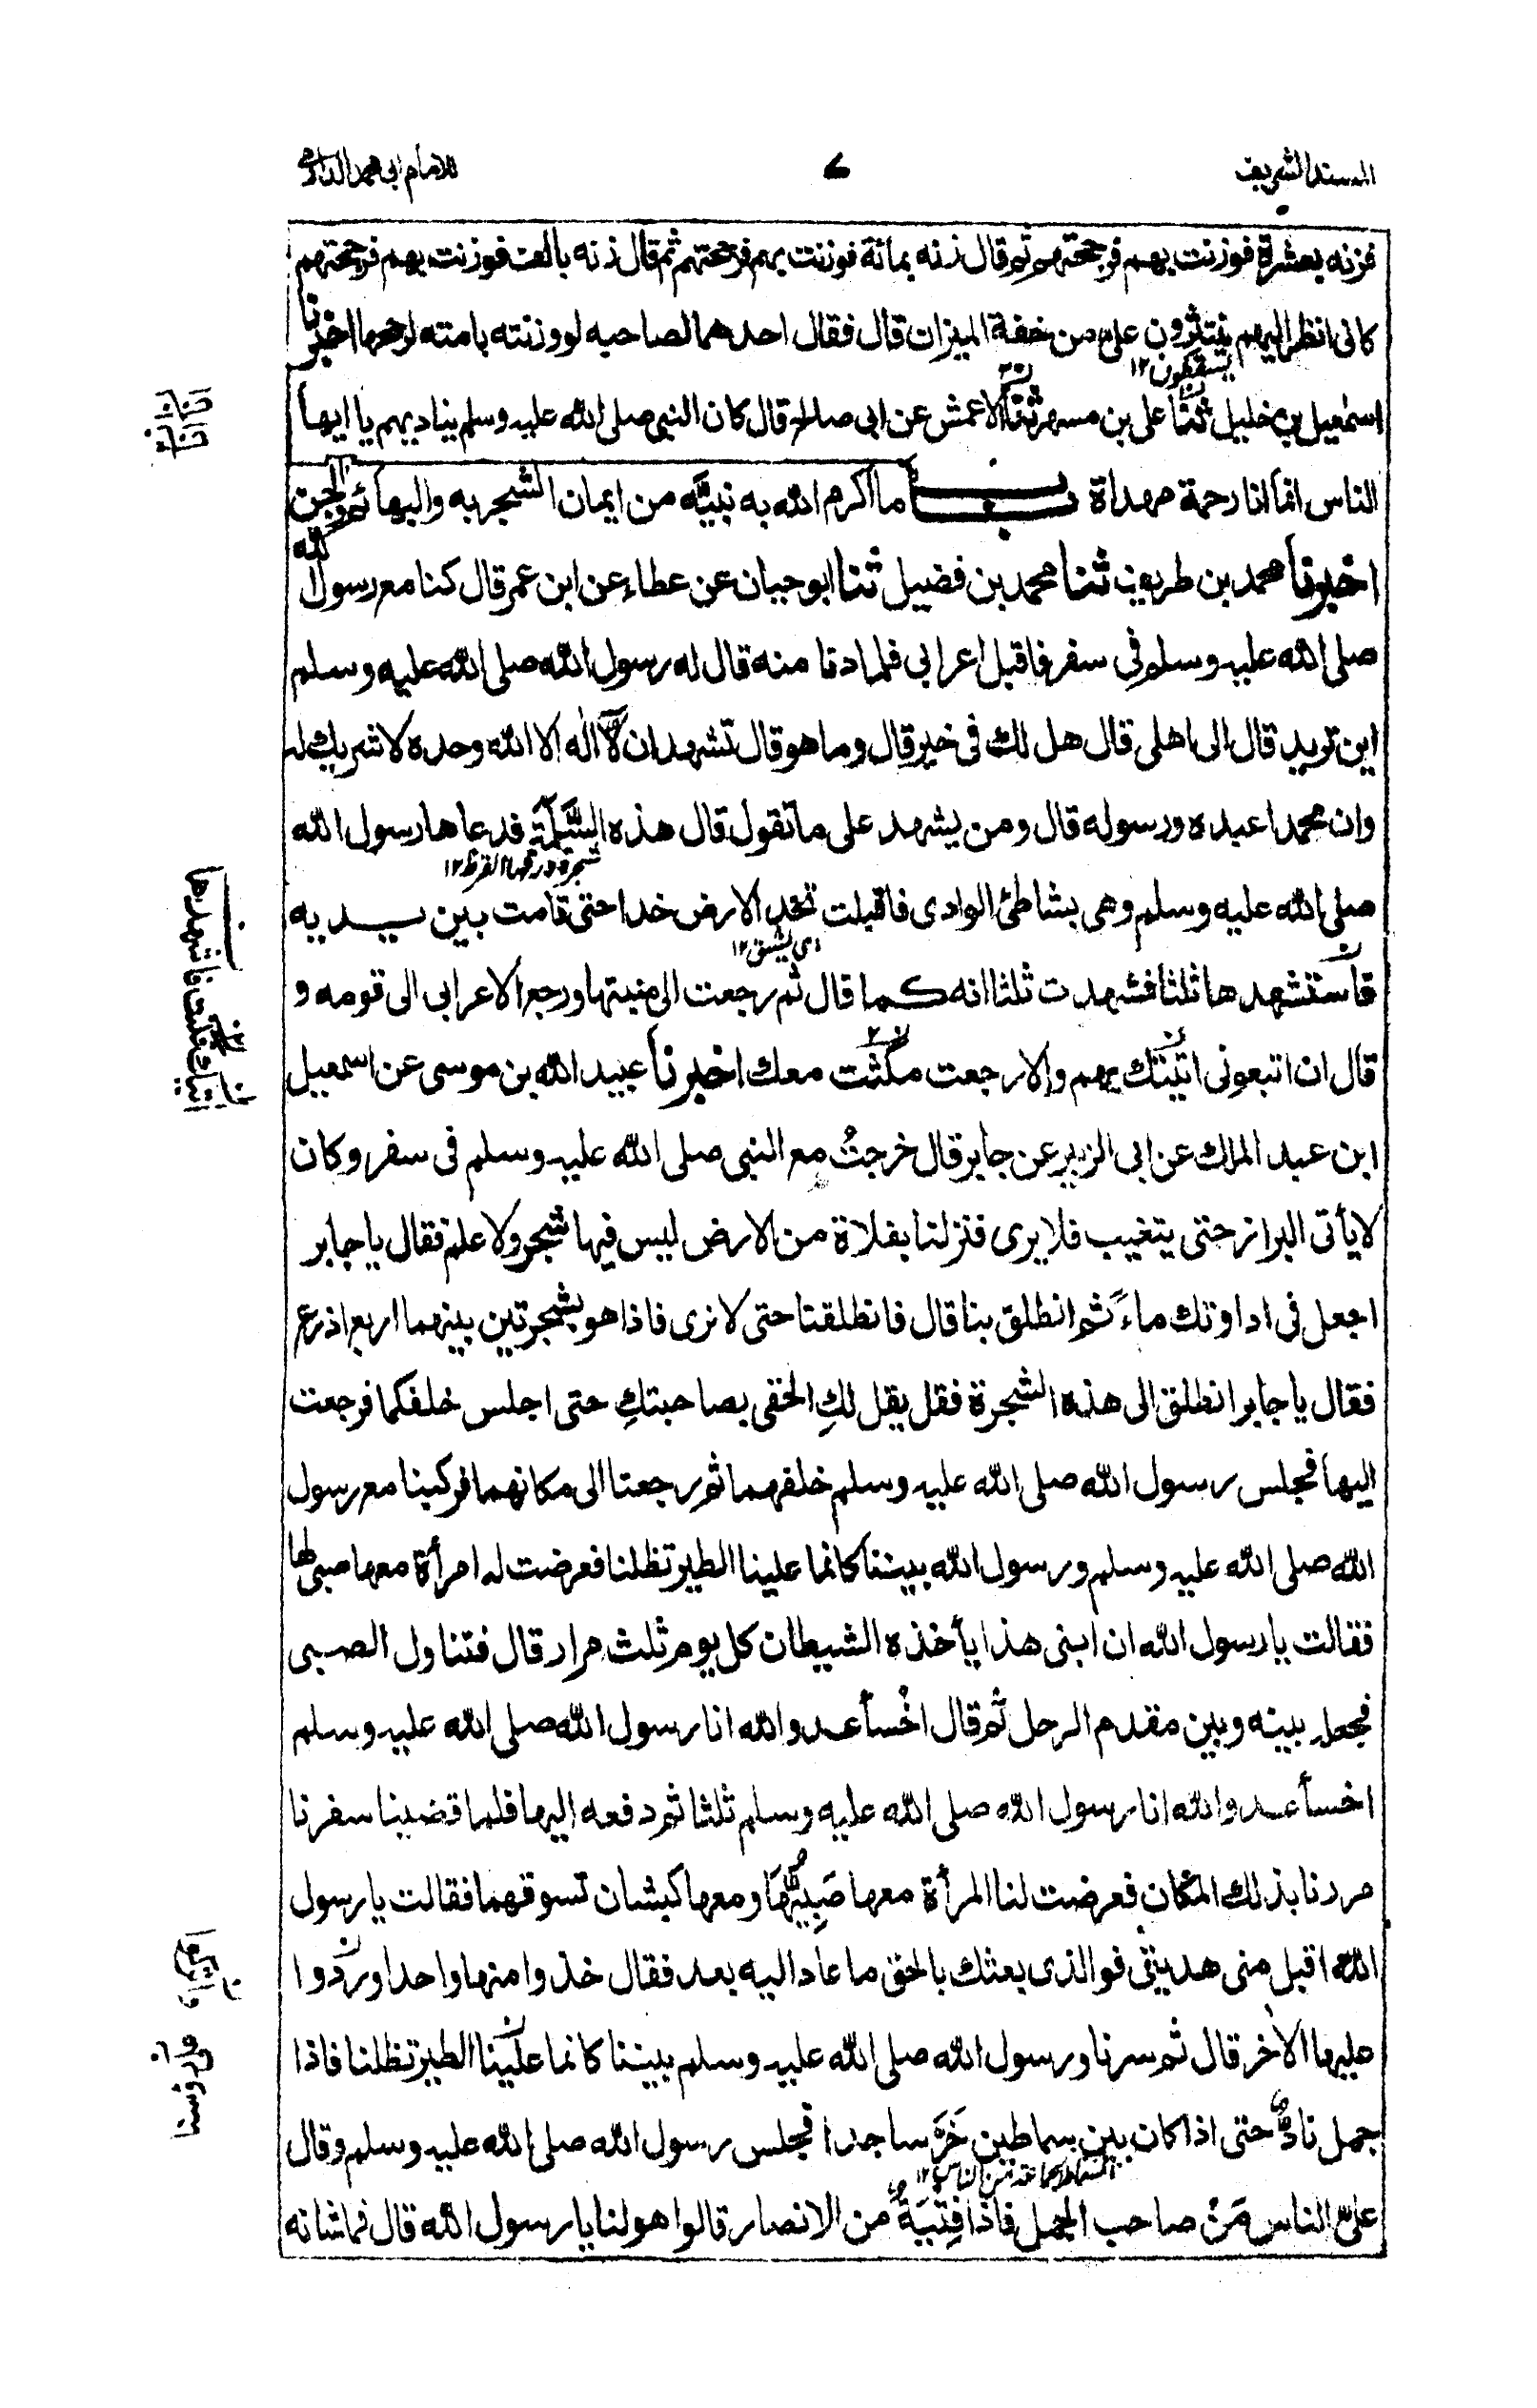 المسند الشريف
٧
للامام ابى محمد الدارمى
فزنه بعشرة فوزنت بهم فرجحتهم ثم قال زنه بمائة فوزنت بهم فرجحتهم ثم قال زنه بالف فوزنت بهم فرجحتهم
كانى انظر اليهم ينتثرون على من خفة الميزان قال فقال احدهما لصاحبه لو وزنته بامته لرجحها اخبرنا
يتسقطون ١٢
اسمٰعيل بن خليل ثنا على بن مسهر ثنا الاعمش عن ابى صالح قال كان النبى صلى الله عليه وسلم يناديهم يا ايها
الناس انما انا رحمة مهداة باب ما اكرم الله به نبيه من ايمان الشجر به والبهائم والجن
اخبرنا محمد بن طريف ثنا محمد بن فضيل ثنا ابو حيان عن عطاء عن ابن عمر قال كنا مع رسول الله
صلى الله عليه وسلم فى سفر فاقبل اعرابى فلما دنا منه قال له رسول الله صلى الله عليه وسلم
اين تريد قال الى اهلى قال هل لك فى خير قال وما هو قال تشهد ان لآ الٰه الا الله وحده لا شريك له
وان محمدا عبده ورسوله قال ومن يشهد على ما تقول قال هذه السَّلَمَة فدعاها رسول الله
شجرة ورقها القرظ ١٢
صلى الله عليه وسلم وهى بشاطئ الوادى فاقبلت تخد الارض خدا حتى قامت بين يديه
اى يشق ١٢
فاستشهدها ثلثا فشهدت ثلثا انه كما قال ثم رجعت الى منبتها ورجع الاعرابى الى قومه و
قال ان اتبعونى اتيتك بهم والا رجعت مكثت معك اخبرنا عبيد الله بن موسى عن اسمعيل
ابن عبد الملك عن ابى الزبير عن جابر قال خرجتُ مع النبى صلى الله عليه وسلم فى سفر وكان
لا يأتى البراز حتى يتغيب فلا يرى فنزلنا بفلاة من الارض ليس فيها شجر ولا علم فقال يا جابر
اجعل فى اداوتك ماءً ثم انطلق بنا قال فانطلقنا حتى لا نرى فاذا هو بشجرتين بينهما اربع اذرع
فقال يا جابر انطلق الى هذه الشجرة فقل يقل لكِ الحقى بصاحبتكِ حتى اجلس خلفكما فرجعت
اليها فجلس رسول الله صلى الله عليه وسلم خلفهما ثم رجعتا الى مكانهما فركبنا مع رسول
الله صلى الله عليه وسلم ورسول الله بيننا كانما علينا الطير تظلنا فعرضت له امرأة معها صبى لها
فقالت يا رسول الله ان ابنى هذا يأخذه الشيطان كل يوم ثلث مرار قال فتناول الصبى
فجعله بينه وبين مقدم الرحل ثم قال اخْسأ عدو الله انا رسول الله صلى الله عليه وسلم
اخسأ عدو الله انا رسول الله صلى الله عليه وسلم ثلثا ثم دفعه اليها فلما قضينا سفرنا
مررنا بذلك المكان فعرضت لنا المرأة معها صَبِيُّهَا ومعها كبشان تسوقهما فقالت يا رسول
الله اقبل منى هديتى فوالذى بعثك بالحق ما عاد اليه بعد فقال خذوا منها واحدا وردوا
عليها الاخر قال ثم سرنا ورسول الله صلى الله عليه وسلم بيننا كانما علينا الطير تظلنا فاذا
جمل نادٌّ حتى اذا كان بين سماطين خَرَّ ساجدا فجلس رسول الله صلى الله عليه وسلم وقال
السماط جماعة من الناس ١٢
علىَّ الناس مَنْ صاحب الجمل فاذا فِتْيَةٌ من الانصار قالوا هو لنا يا رسول الله قال فما شانه